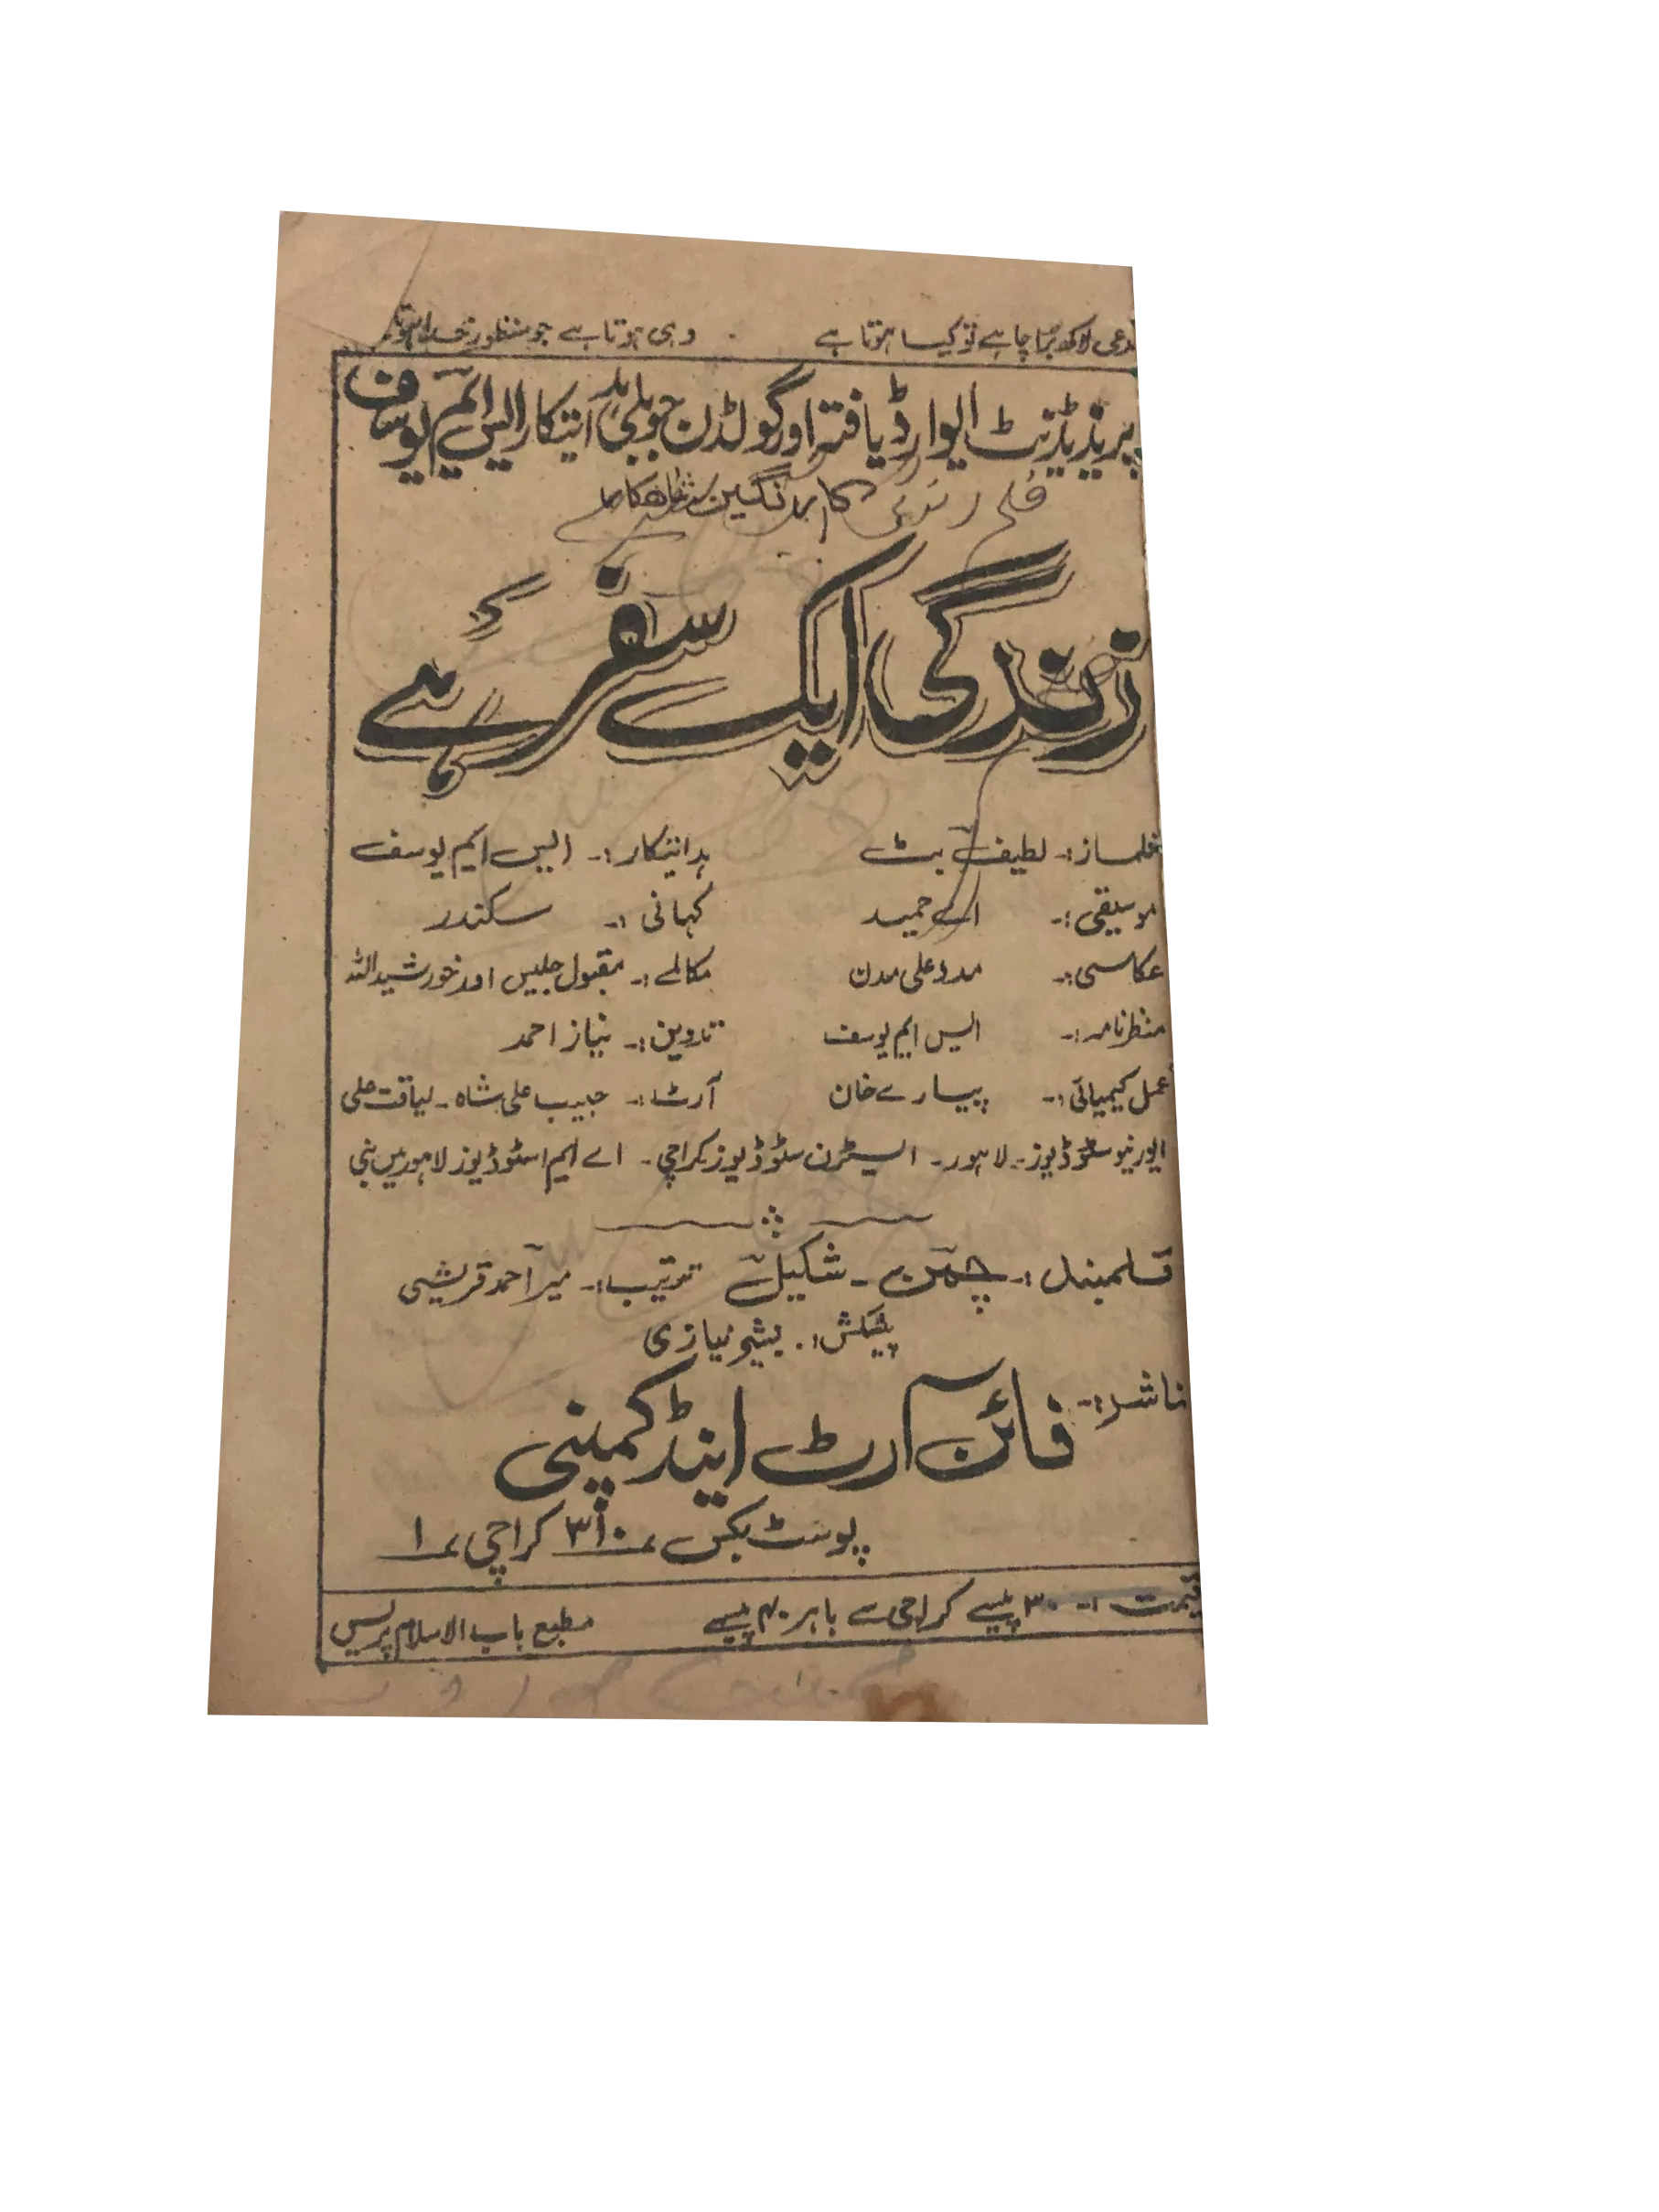 مدعی لاکھ برا چاہے تو کیا ہوتا ہے . وہی ہوتا ہے جو منظور خدا ہوتا
پریذیڈنٹ ایوارڈ یافتہ اور گولڈن جوبلی ہدایتکار ایس ایم یوسف
کا رنگین شاھکار
زندگی ایک سفر ہے
فلمساز:۔ لطیف بٹ ہدایتکار:۔ ایس ایم یوسف
موسیقی:۔ اے حمید کہانی:۔ سکندر
عکاسی:۔ مدد علی مدن مکالمے:۔ مقبول جلیس اور خورشید اللہ
منظرنامہ:۔ ایس ایم یوسف تدوین:۔ نیاز احمد
عمل کیمیائی:۔ پیارے خان آرٹ:۔ حبیب علی شاہ۔ لیاقت علی
ایورنیو سٹوڈیوز۔ لاہور۔ ایسٹرن سٹوڈیوز کراچی۔ اے ایم اسٹوڈیوز لاہور میں بنی
قلمبند:۔ چمن۔ شکیل ترتیب:۔ میر احمد قریشی
پیشکش:۔ بشیر نیازی
ناشر:۔ فائن آرٹ اینڈ کمپنی
پوسٹ بکس ؍ کراچی ؍۱
قیمت:۔ ۳۰ پیسے کراچی سے باہر ۴۰ پیسے مطبع باب الاسلام پریس